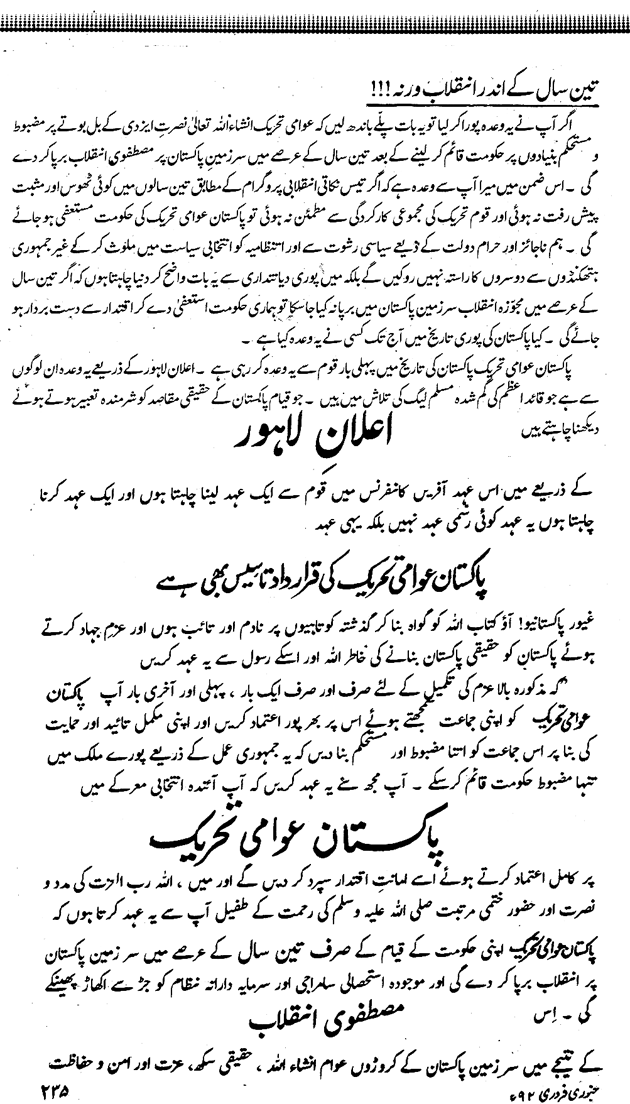 تین سال کے اندر انقلاب ورنہ!!!
اگر آپ نے یہ وعدہ پورا کر لیا تو یہ بات پلے باندھ لیں کہ عوامی تحریک انشاء اللہ تعالیٰ نصرتِ ایزدی کے بل بوتے پر مضبوط
و مستحکم بنیادوں پر حکومت قائم کر لینے کے بعد تین سال کے عرصے میں سرزمینِ پاکستان پر مصطفوی انقلاب برپا کر دے
گی ۔ اس ضمن میں میرا آپ سے وعدہ ہے کہ اگر تیس نکاتی انقلابی پروگرام کے مطابق تین سالوں میں کوئی ٹھوس اور مثبت
پیش رفت نہ ہوئی اور قوم تحریک کی مجموعی کارکردگی سے مطمئن نہ ہوئی تو پاکستان عوامی تحریک کی حکومت مستعفی ہو جائے
گی ۔ ہم ناجائز اور حرام دولت کے ذریعے سیاسی رشوت سے اور انتظامیہ کو انتخابی سیاست میں ملوث کر کے غیر جمہوری
ہتھکنڈوں سے دوسروں کا راستہ نہیں روکیں گے بلکہ میں پوری دیانتداری سے یہ بات واضح کر دینا چاہتا ہوں کہ اگر تین سال
کے عرصے میں مجوّزہ انقلاب سرزمین پاکستان میں برپا نہ کیا جا سکا تو ہماری حکومت استعفیٰ دے کر اقتدار سے دست بردار ہو
جائے گی ۔ کیا پاکستان کی پوری تاریخ میں آج تک کسی نے یہ وعدہ کیا ہے ۔
پاکستان عوامی تحریک پاکستان کی تاریخ میں پہلی بار قوم سے یہ وعدہ کر رہی ہے ۔ اعلان لاہور کے ذریعے یہ وعدہ ان لوگوں
سے ہے جو قائد اعظم کی گم شدہ مسلم لیگ کی تلاش میں ہیں ۔ جو قیام پاکستان کے حقیقی مقاصد کو شرمندہ تعبیر ہوتے ہوئے
دیکھنا چاہتے ہیں
اعلانِ لاہور
کے ذریعے میں اس عہد آفریں کانفرنس میں قوم سے ایک عہد لینا چاہتا ہوں اور ایک عہد کرنا
چاہتا ہوں یہ عہد کوئی رسمی عہد نہیں بلکہ یہی عہد
پاکستان عوامی تحریک کی قرارداد تاسیس بھی ہے
غیور پاکستانیو! آؤ کتاب اللہ کو گواہ بنا کر گذشتہ کوتاہیوں پر نادم اور تائب ہوں اور عزمِ جہاد کرتے
ہوئے پاکستان کو حقیقی پاکستان بنانے کی خاطر اللہ اور اسکے رسول سے یہ عہد کریں
"کہ مذکورہ بالا عزم کی تکمیل کے لئے صرف اور صرف ایک بار ، پہلی اور آخری بار آپ پاکستان
عوامی تحریک کو اپنی جماعت سمجھتے ہوئے اس پر بھرپور اعتماد کریں اور اپنی مکمل تائید اور حمایت
کی بنا پر اس جماعت کو اتنا مضبوط اور مستحکم بنا دیں کہ یہ جمہوری عمل کے ذریعے پورے ملک میں
تنہا مضبوط حکومت قائم کر سکے ۔ آپ مجھ سے یہ عہد کریں کہ آپ آئندہ انتخابی معرکے میں
پاکستان عوامی تحریک
پر کامل اعتماد کرتے ہوئے اسے امانتِ اقتدار سپرد کر دیں گے اور میں ، اللہ رب العزت کی مدد و
نصرت اور حضور ختمی مرتبت صلی اللہ علیہ وسلم کی رحمت کے طفیل آپ سے یہ عہد کرتا ہوں کہ
پاکستان عوامی تحریک اپنی حکومت کے قیام کے صرف تین سال کے عرصے میں سر زمین پاکستان
پر انقلاب برپا کر دے گی اور موجودہ استحصالی سامراجی اور سرمایہ دارانہ نظام کو جڑ سے اکھاڑ پھینکے
گی ۔ اِس
مصطفوی انقلاب
کے نتیجے میں سر زمین پاکستان کے کروڑوں عوام انشاء اللہ ، حقیقی سکھ، عزت اور امن و حفاظت
جنوری فروری ۹۲ء
۲۳۵